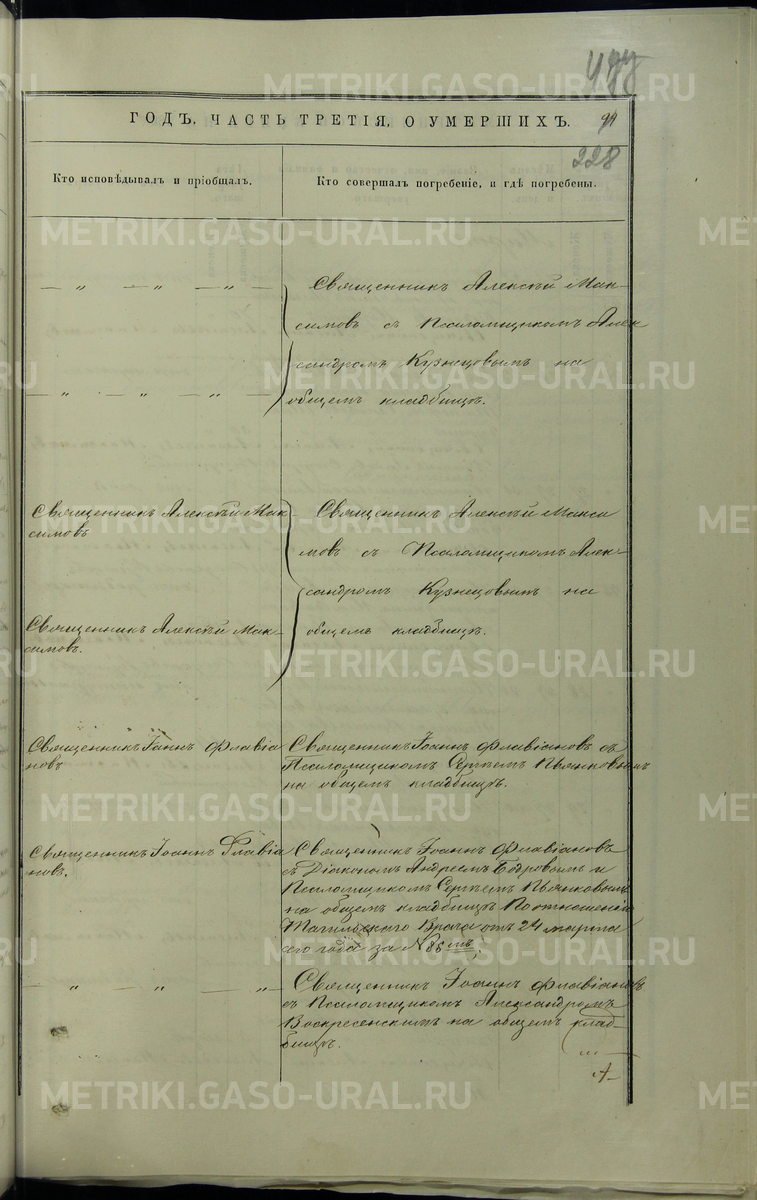 ГОДЪ, ЧАСТЬ ТРЕТІЯ, О УМЕРШИХЪ.
228
Кто исповѣдывалъ и пріобщалъ.
Кто совершалъ погребеніе, и гдѣ погребены.
— „ — „ — „ —
Священникъ Алексѣй Мак-
симовъ съ Псаломщикомъ Алек
сандромъ Кузнецовымъ на
— „ — „ — „ —
общемъ кладбищѣ.
Священникъ Алексѣй Мак-
симовъ
Священникъ Алексѣй Макси
мовъ съ Псаломщикомъ Алек-
сандромъ Кузнецовымъ на
общемъ кладбищѣ.
Священникъ Алексѣй Мак-
симовъ.
Священникъ Іоаннъ Флавіа
новъ
Священникъ Іоаннъ Флавіановъ съ
Псаломщикомъ Сергѣемъ Пьянковымъ
на общемъ кладбищѣ.
Священникъ Іоаннъ Флавіа
новъ.
Священникъ Іоаннъ Флавіановъ
съ Діакономъ Андреемъ Бобровымъ и
Псаломщикомъ Сергѣемъ Пьянковымъ
на общемъ кладбищѣ По отношенію
Тагильскаго Врача отъ 24 марта
сего года за №
— „ — „ — „ —
Священникъ Іоаннъ Флавіановъ
съ Псаломщикомъ Александромъ
Воскресенскимъ на общемъ клад-
бищѣ.
METRIKI.GASO-URAL.RU